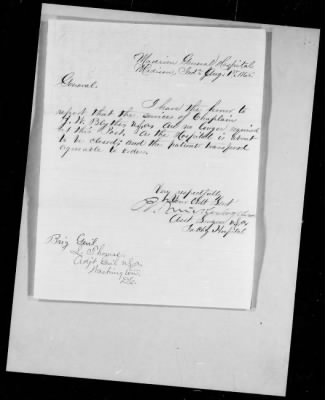 Madison General Hospital
Madison Ind. Aug. 1st 1865.
General.
I have the honor to
report that the services of Chaplain
J. W. Blythe are no longer required
at this Post, as the Hospital is about
to be closed, and the patients transferred
agreeable to order.
Very respectfully
Your Obt Servt
Asst Surgeon
Hospital
Brig Genl.
Adjt Genl
Washington
D.C.